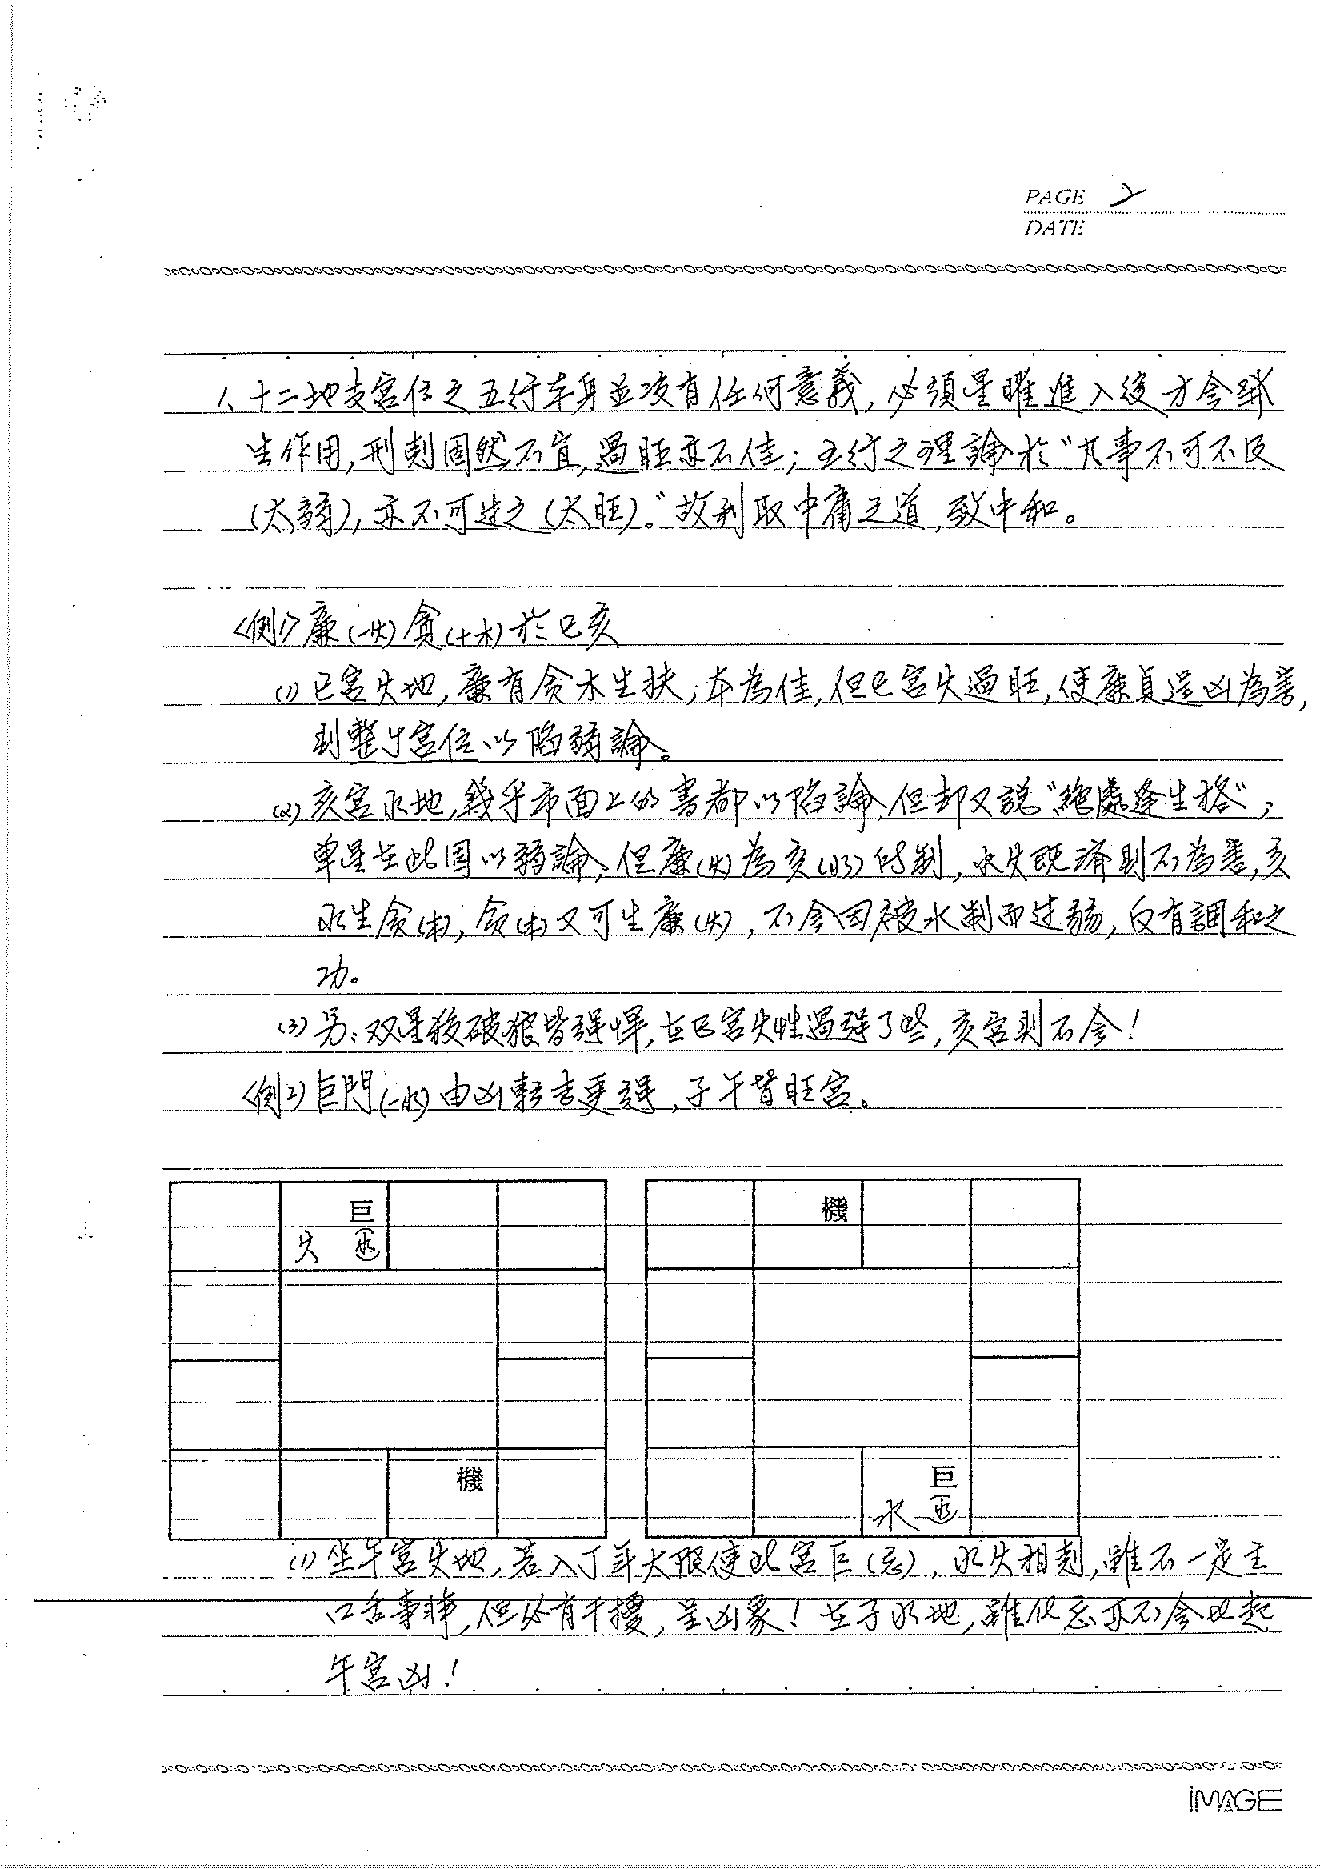 PAGE 2
DATE
1、十二地支宮位之五行本身並沒有任何意義，必須星曜進入後方會發
生作用，刑剋固然不宜，過旺亦不佳；五行之理論於"凡事不可不及
(太弱)，亦不可过之(太旺)。"故利取中庸之道，致中和。
〈例1〉廉(-火)貪(+木)於巳亥
(1)巳宮火地，廉有貪木生扶，本為佳，但巳宮火過旺，使廉貞逞凶為害，
則整个宮位以陷弱論。
(2)亥宮水地，幾乎市面上的書都以陷論，但却又說"絕處逢生格"，
單星在此固以弱論，但廉(火)為亥(水)所制，水火既濟則不為害，亥
水生貪(木)，貪(木)又可生廉(火)，不會因被水制而过弱，反有調和之
功。
(3)另：双星殺破狼皆強悍，在巳宮火性過強了些，亥宮則不會！
〈例2〉巨門(-水)由凶轉吉更強，子午皆旺宮。
巨 機
火 (水)
機 巨
水 (水)
(1)坐午宮火地，若入丁年太歲使此宮巨(忌)，水火相剋，雖不一定主
口舌事非，但必有干擾，呈凶象！在子水地，雖化忌亦不會比起
午宮凶！
iMAGE